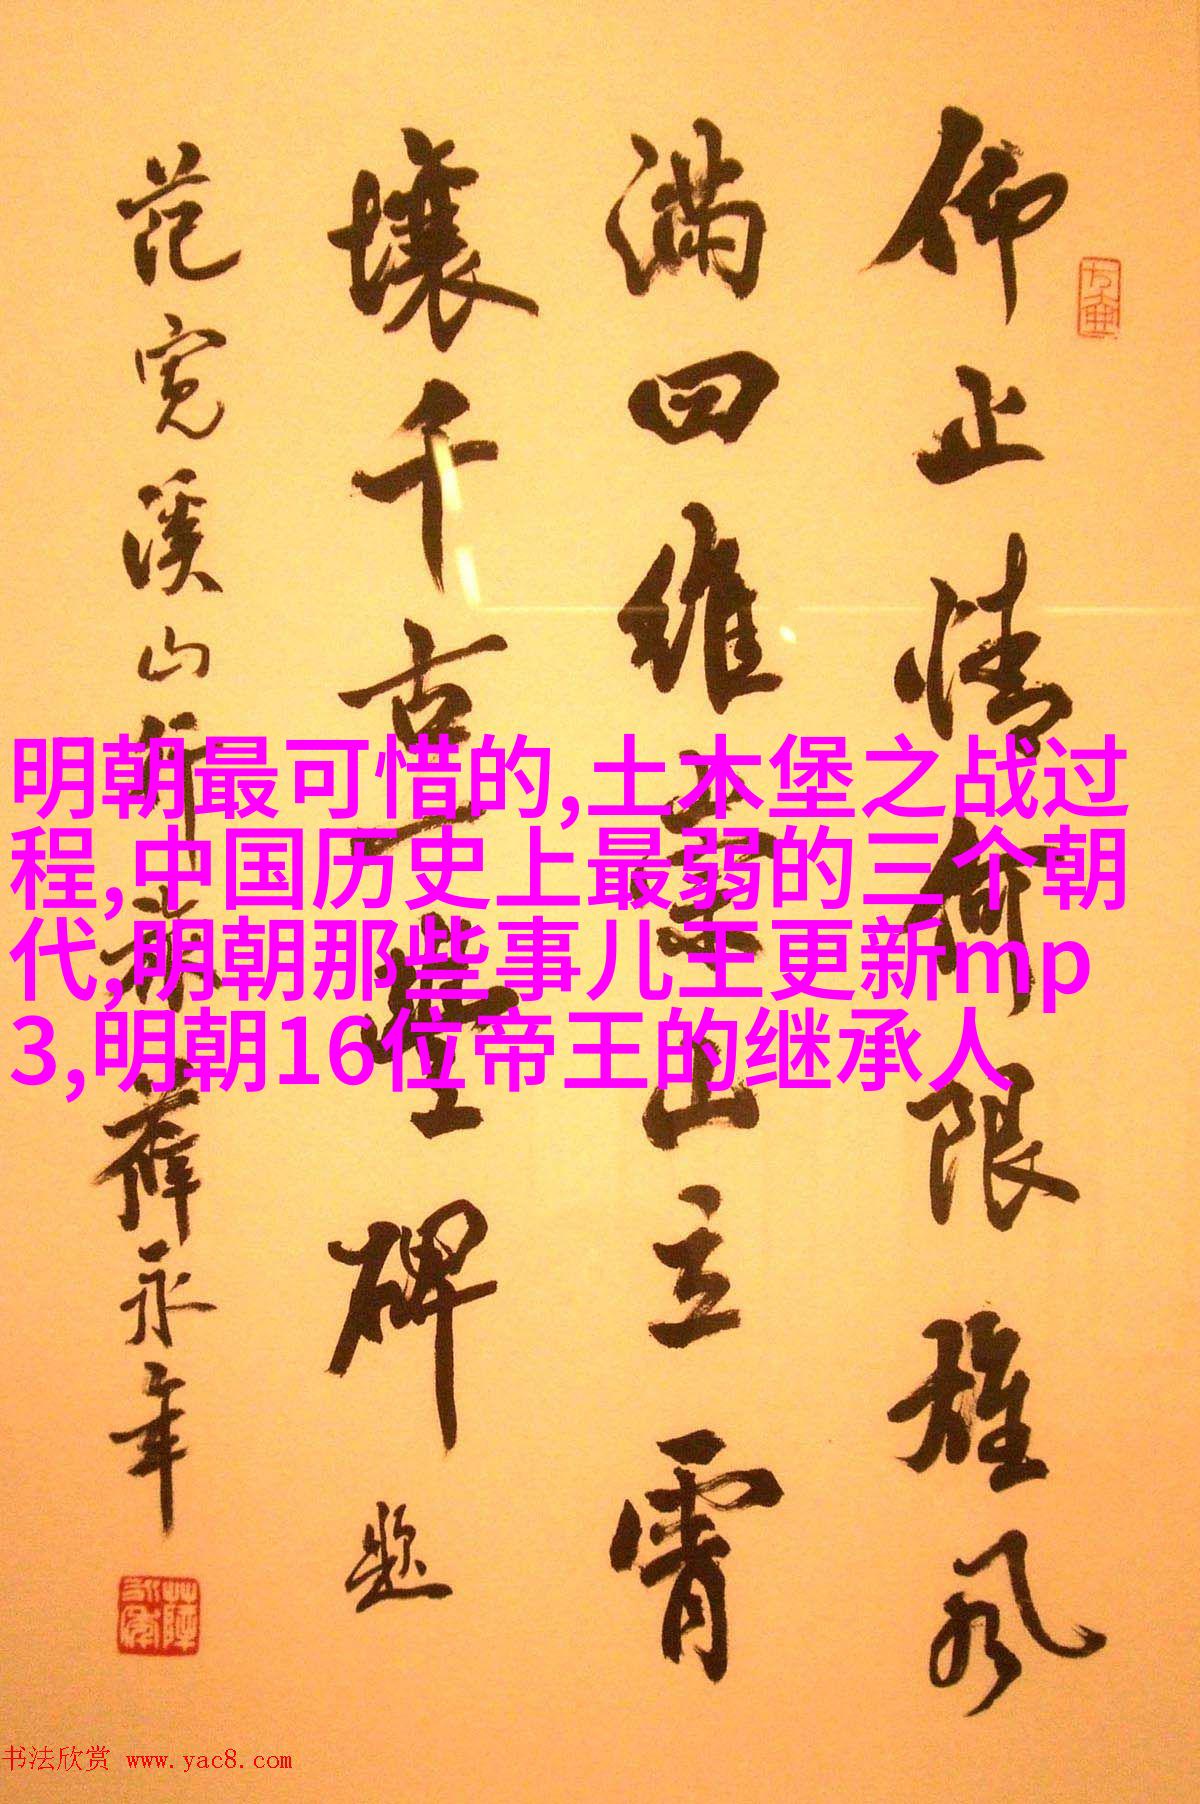 仰止情何限雄风
满四维泰山立霄
壤千古一丰碑 题
范宽溪山行旅 薛永年
明朝最可惜的,土木堡之战过
程,中国历史上最弱的三个朝
代,明朝那些事儿王更新mp
3,明朝16位帝王的继承人
书法欣赏 www.yac8.com